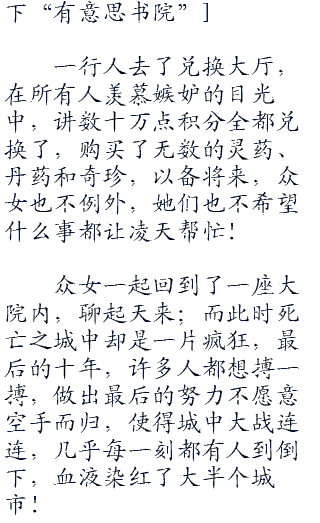 下“有意思书院”］
　　一行人去了兑换大厅，
在所有人羡慕嫉妒的目光
中，讲数十万点积分全都兑
换了，购买了无数的灵药、
丹药和奇珍，以备将来，众
女也不例外，她们也不希望
什么事都让凌天帮忙！
　　众女一起回到了一座大
院内，聊起天来；而此时死
亡之城中却是一片疯狂，最
后的十年，许多人都想搏一
搏，做出最后的努力不愿意
空手而归，使得城中大战连
连，几乎每一刻都有人到倒
下，血液染红了大半个城
市！